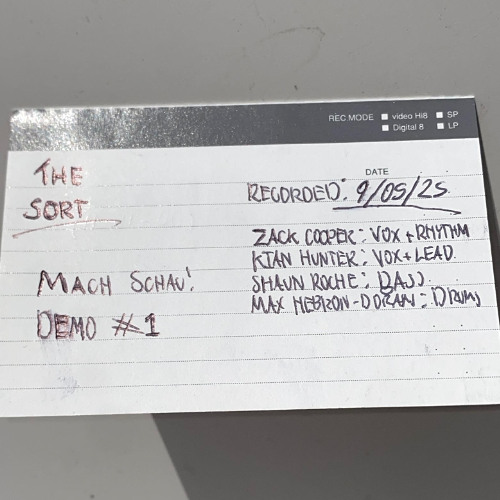 REC MODE ■ video Hi8 ■ SP
■ Digital 8 ■ LP
DATE
THE
SORT
RECORDED: 9/05/25
ZACK COOPER: VOX + RHYTHM
KIAN HUNTER: VOX + LEAD
SHAUN ROCHE: BASS
MAX HEBRON-DORAN: DRUMS
MACH SCHAU!
DEMO #1